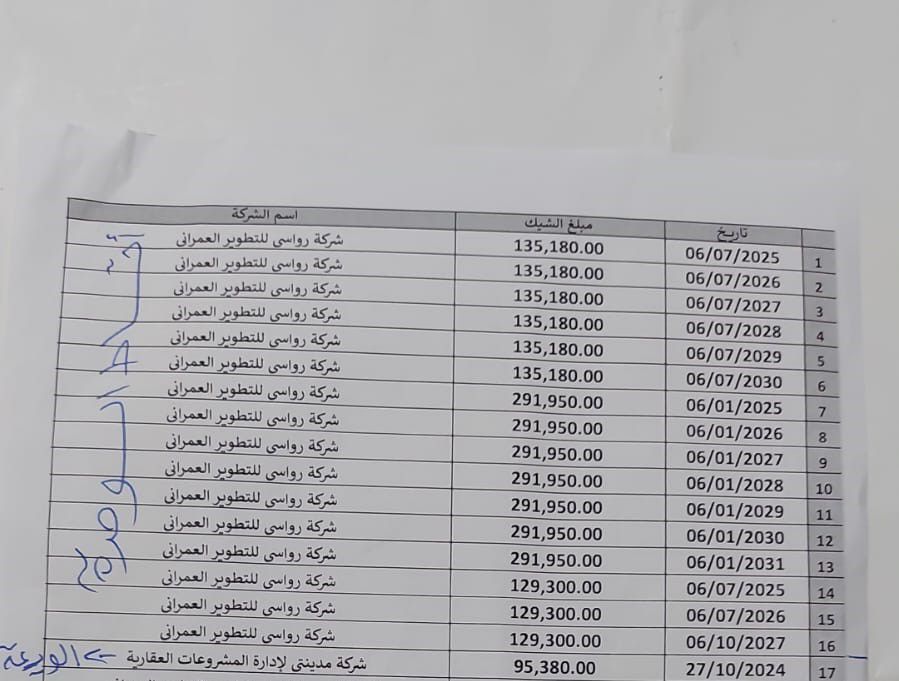 تاريخ مبلغ الشيك اسم الشركة
1 06/07/2025 135,180.00 شركة رواسى للتطوير العمرانى
2 06/07/2026 135,180.00 شركة رواسى للتطوير العمرانى
3 06/07/2027 135,180.00 شركة رواسى للتطوير العمرانى
4 06/07/2028 135,180.00 شركة رواسى للتطوير العمرانى
5 06/07/2029 135,180.00 شركة رواسى للتطوير العمرانى
6 06/07/2030 135,180.00 شركة رواسى للتطوير العمرانى
7 06/01/2025 291,950.00 شركة رواسى للتطوير العمرانى
8 06/01/2026 291,950.00 شركة رواسى للتطوير العمرانى
9 06/01/2027 291,950.00 شركة رواسى للتطوير العمرانى
10 06/01/2028 291,950.00 شركة رواسى للتطوير العمرانى
11 06/01/2029 291,950.00 شركة رواسى للتطوير العمرانى
12 06/01/2030 291,950.00 شركة رواسى للتطوير العمرانى
13 06/01/2031 291,950.00 شركة رواسى للتطوير العمرانى
14 06/07/2025 129,300.00 شركة رواسى للتطوير العمرانى
15 06/07/2026 129,300.00 شركة رواسى للتطوير العمرانى
16 06/10/2027 129,300.00 شركة رواسى للتطوير العمرانى
17 27/10/2024 95,380.00 شركة مدينتى لإدارة المشروعات العقارية الوديعة